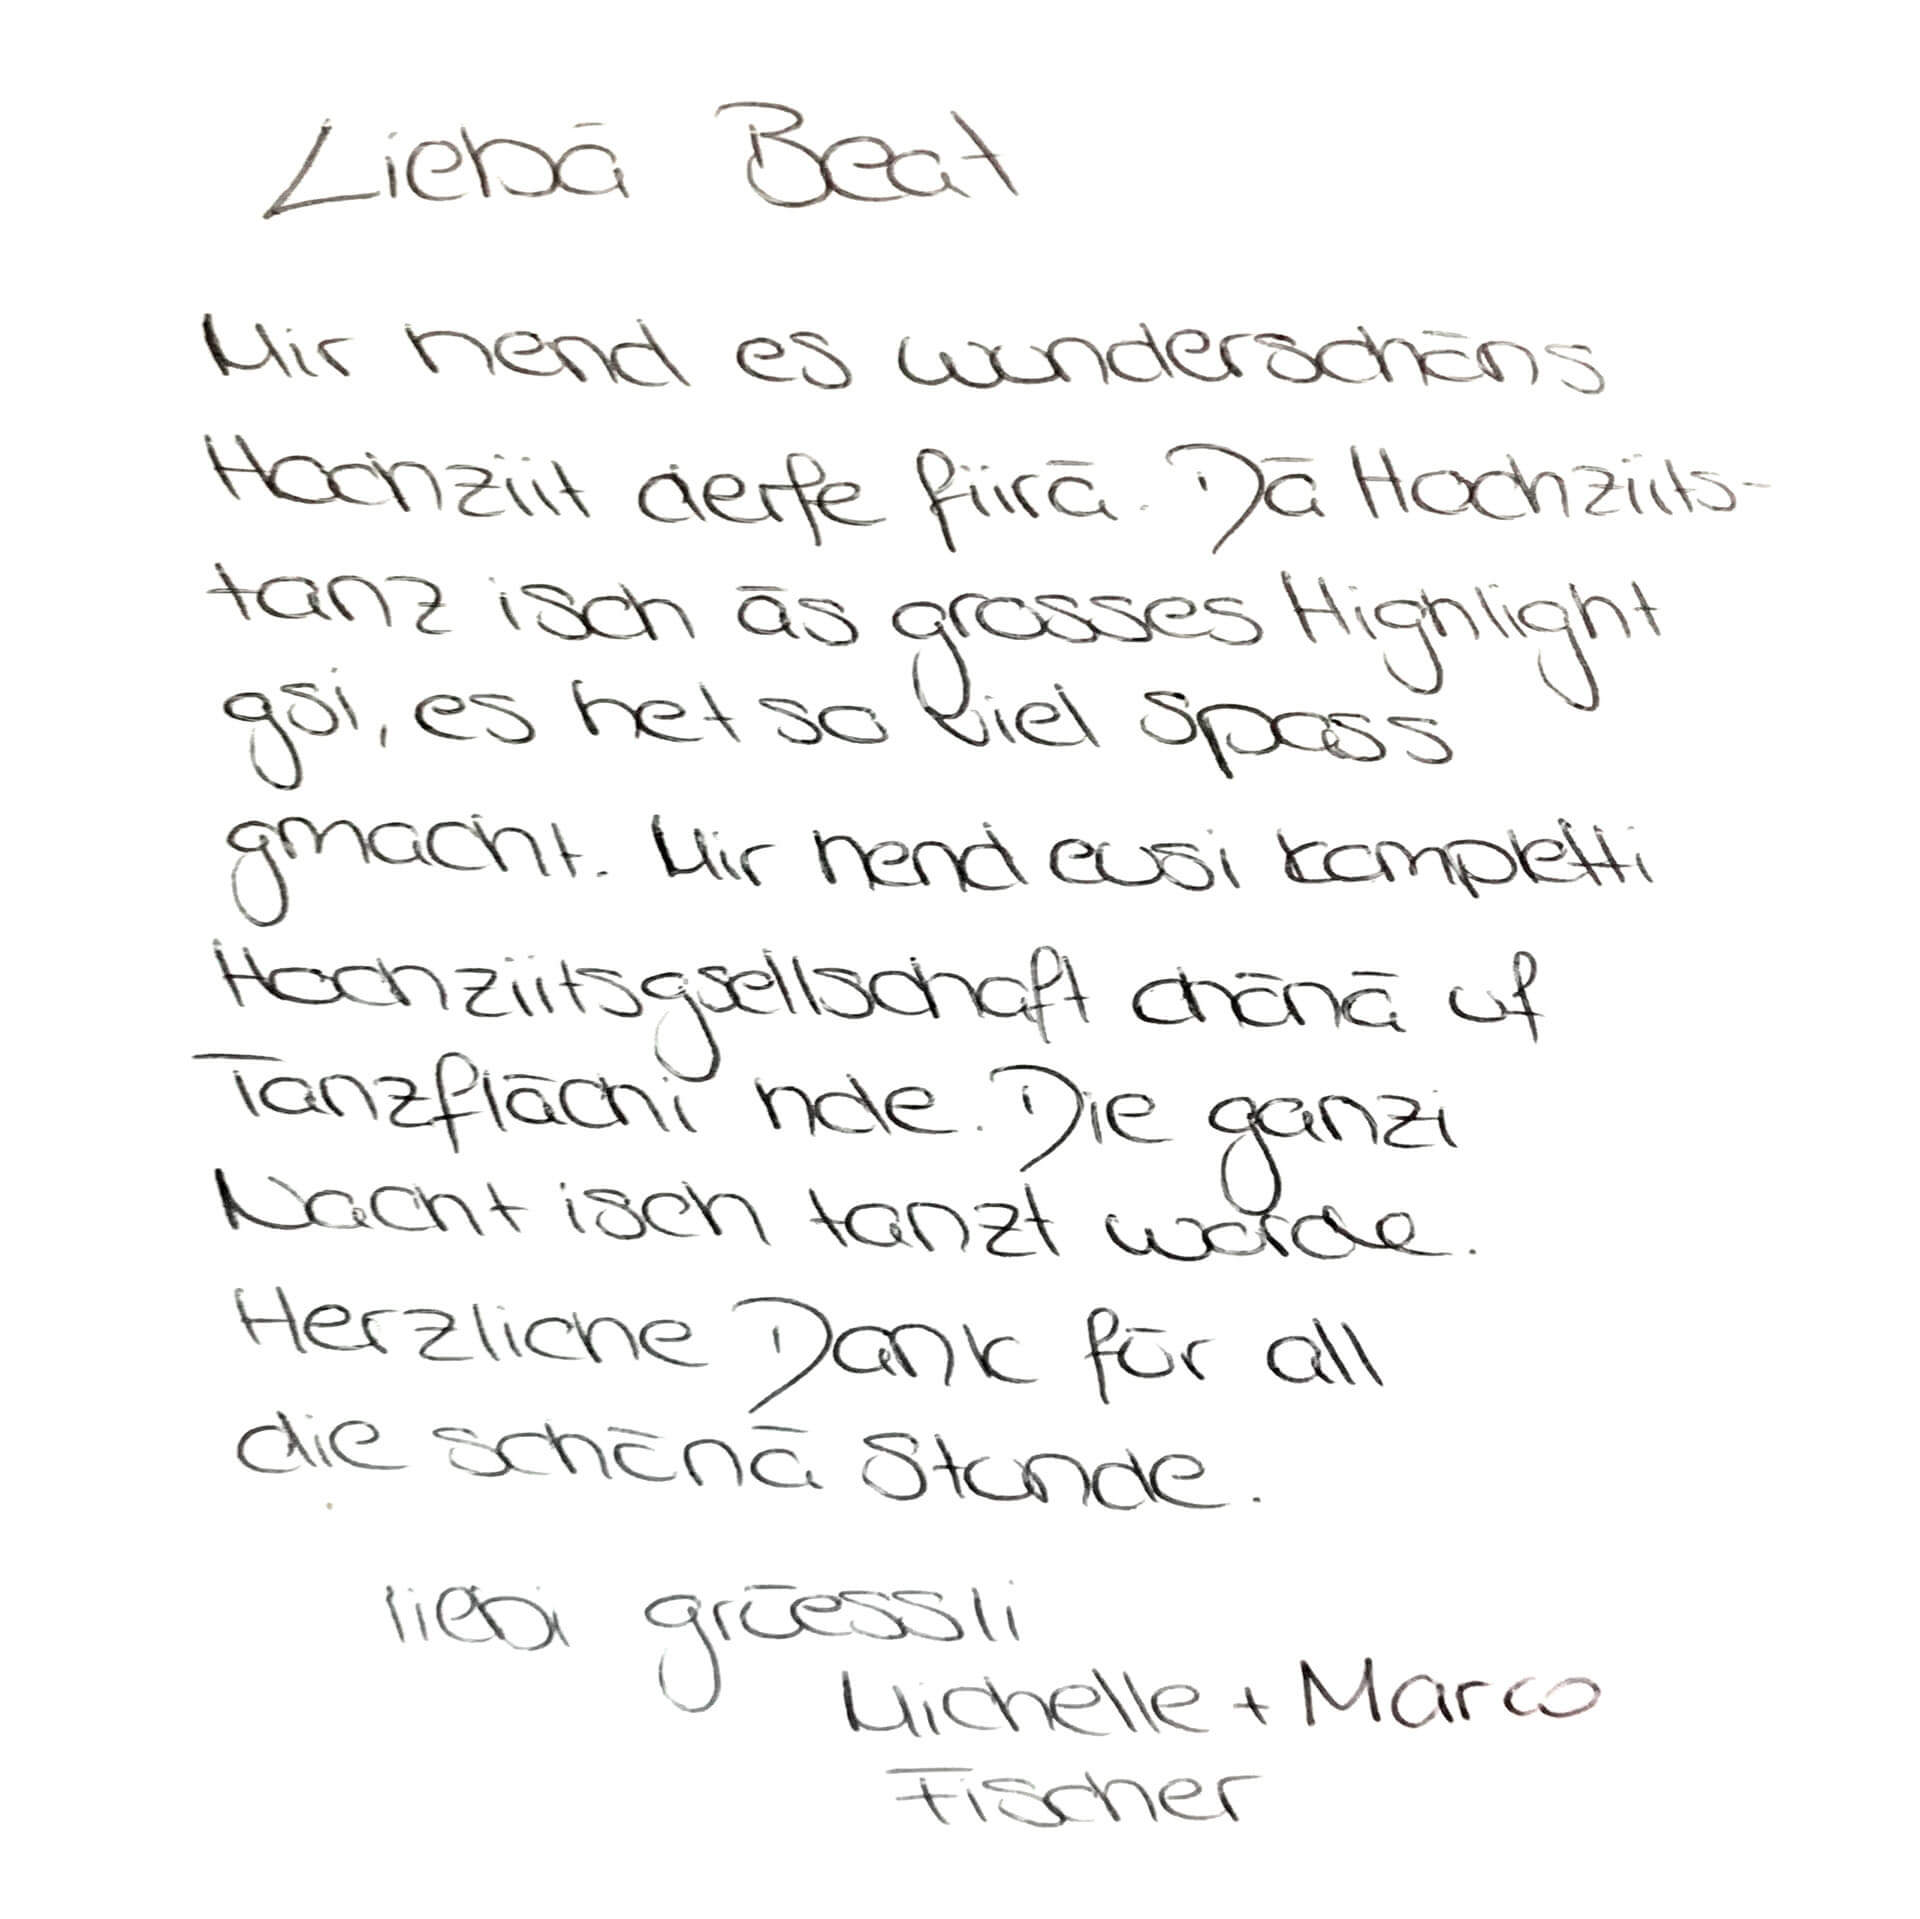 Liebä Beat
Mir hend es wunderschöns
Hochziit derfe fiirä. Dä Hochziits-
tanz isch äs grosses Highlight
gsi, es het so viel spass
gmacht. Mir hend eusi kompletti
Hochziitsgsellschaft chönä uf
Tanzflächi hole. Die ganzi
Nacht isch tanzt worde.
Herzliche Dank für all
die schönä Stunde.
liebi grüessli
Michelle + Marco
Fischer